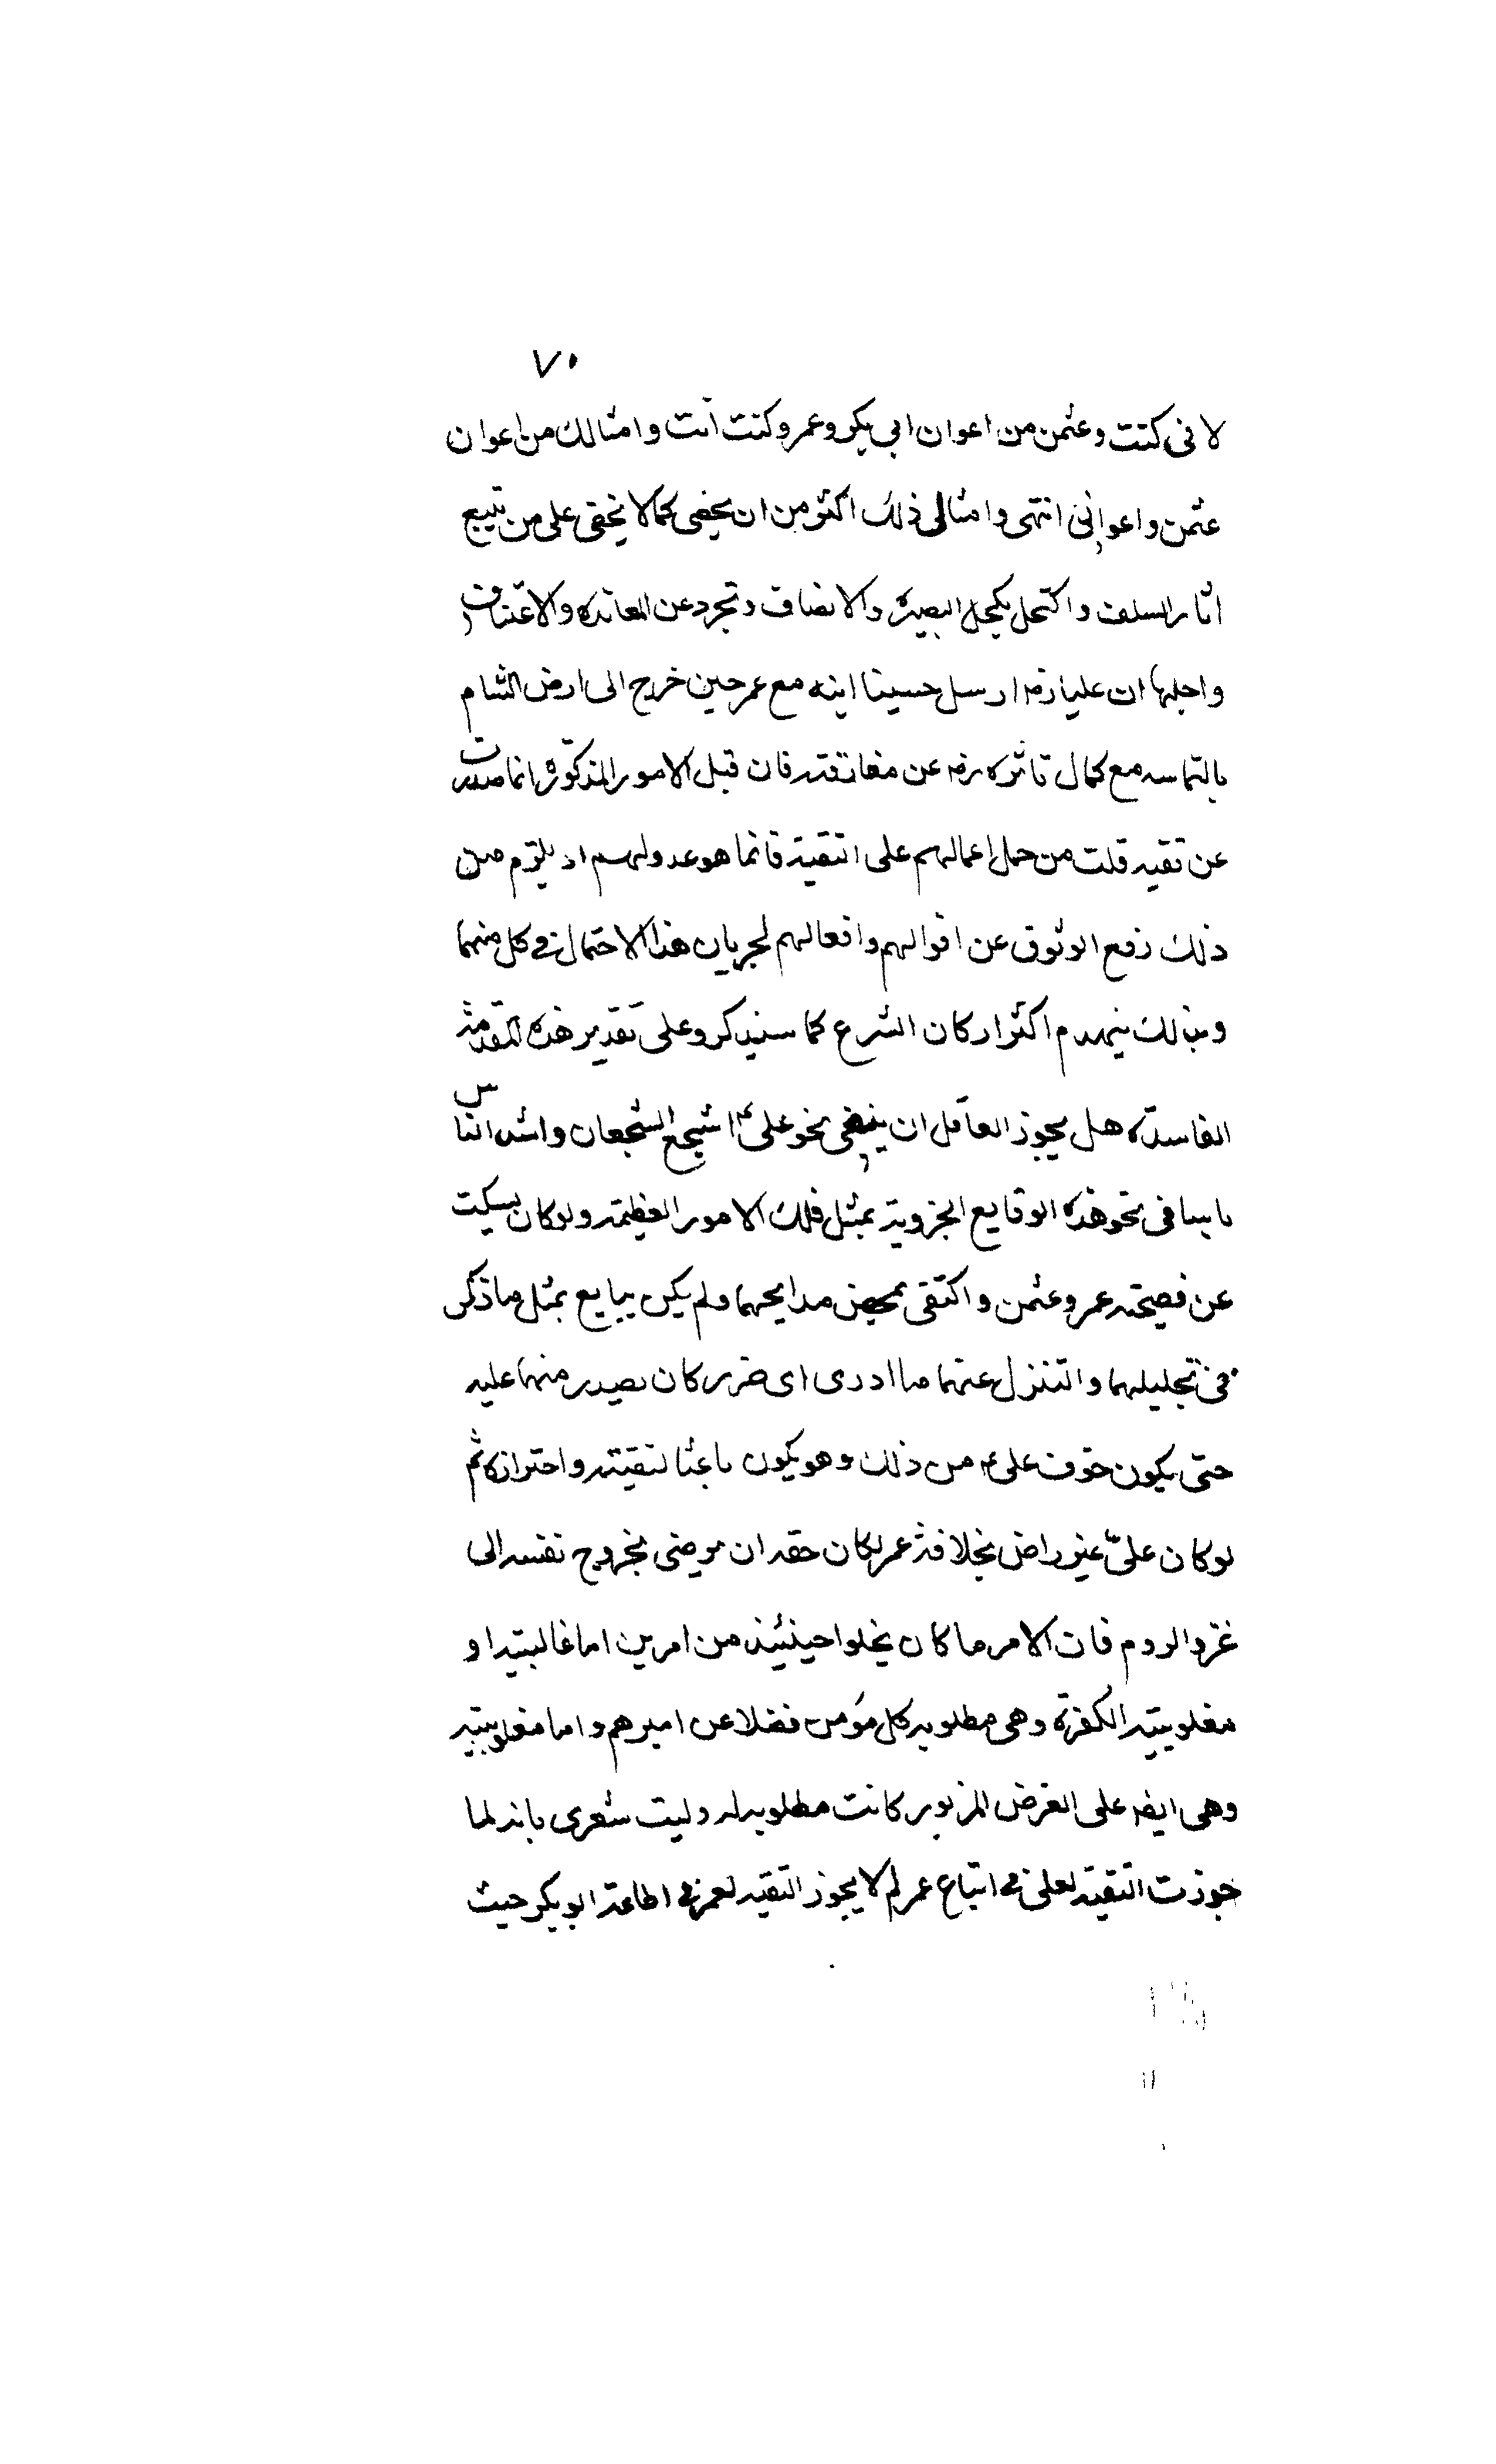 ٧٠
لانى كنت وعثمن من اعوان ابى بكر وعمر وكنت انت وامثالك من اعوان
عثمن واعوانى انتهى وامثال ذلك اكثر من ان يخفى كما لا يخفى على من تتبع
اثار السلف واكتحل بكحل البصيرة والانصاف وتجرد عن المعانده والاعتساف
واجلها ان عليا رضه ارسل حسينا ابنه مع عمر حين خرج الى ارض الشام
بالتماسه مع كمال تاثره رضه عن مفارقته فان قيل الامور المذكورة انما صدرت
عن تقيه قلت من حمل اعمالهم على التقية فانما هو عدو لهم اذ يلزم من
ذلك رفع الوثوق عن اقوالهم وافعالهم لجريان هذا الاحتمال فى كل منهما
وبذالك ينهدم اكثر اركان الشرع كما سنذكر وعلى تقدير هذه المقدمة
الفاسدة هل يجوز العاقل ان يتقى نحو على اشجع الشجعان واشد الناس
باسا فى نحو هذه الوقايع الجزوية بمثل تلك الامور العظيمة ولو كان يسكت
عن فضيحة عمر وعثمن واكتفى بمحض مدايحهما ولم يكن يبايع بمثل ما ذكر
فى تجليلهما والتنزل عنهما ما ادرى اى ضرر كان يصدر منهما عليه
حتى يكون خوف على من ذلك وهو يكون باعثا لتقيته واحترازه ثم
لو كان علىّ غير راض بخلافة عمر لكان حقه ان يرضى بخروج نفسه الى
غزو الروم فان الامر ما كان يخلوا حينئيذ من امرين اما غالبيته او
مغلوبيته الكفرة وهى مطلوبه كل مؤمن فضلا عن اميرهم واما مغلوبيته
وهى ايضه على الفرض المزبور كانت مطلوبه له وليت شعرى بانه لما
جوزت التقية لعلى فى اتباع عمر لم لا يجوز التقيه لعمر فى اطاعة ابو بكر حيث